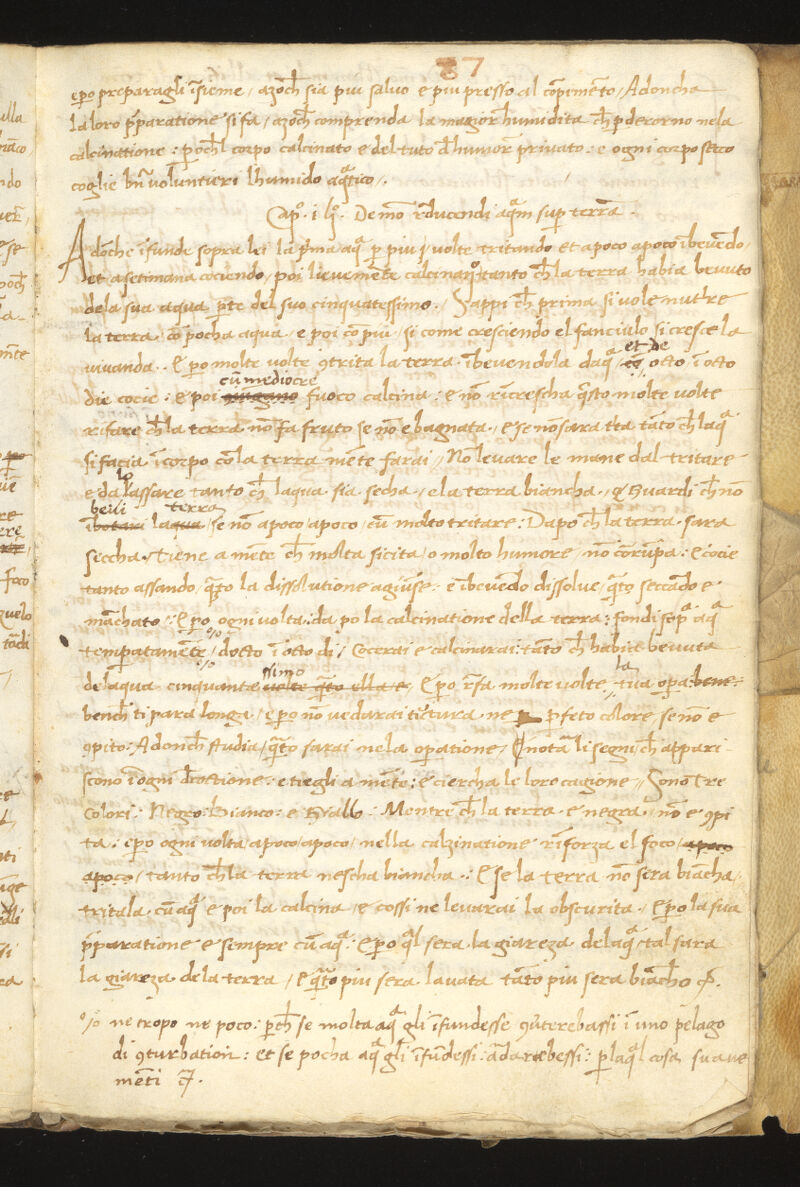 37
epero preparagli īsieme / azoch̄ sia piu salvo e piu presso al cōpimēto / Adoncha
la loro p̄paratione si fa / azoch̄ comprenda la magior humidita ch̄ pderorno nela
calcinatione : pochl corpo calcinato e del tuto d l humor privato : e ogni corpo secco
coglie bn̄ voluntieri lhumido aqtico /.
Capo. i lo. De mō rducendi aqm sup terrā .
Adōche īfunde sopra lei la pma aq p piu volte tritando et apoco apoco ībevēdo /
et a setimana cociendo / poi lievemēte calcinarō tanto ch̄ la terra habia bevuto
dela sua aqua pte del suo cinquatessimo . Sappi ch̄ prima si vole nutrire
la terra cō pocha aqua e poi cō piu si come cresciendo el fanciulo si cresce la
vivanda . E pero molte volte 9trita la terra ībevendola daq et de octo ī octo
die cocie : e poi cū mediocre fuoco calcina : e nō rīcrescha qsto molte volte
rifare ch̄ la terra nō fa fruto se nō e bagnata / e se nō sara tta tāto ch̄ laq
si facia ī corpo cō la terra mēte farai / No levare le mane dal tritare
e da lo lassare tanto ch̄ laqua sia secha / e la terra biancha / Guardi ch̄ nō
beili la terra / se nō apoco / apoco / cū molto tritare : Dapo ch̄ la terra sara
seccha . Tiene a mēte ch̄ molta sicita / o molto humore / nō corūpa : E cocie
tanto assando / qto la dissolutione agiūse e ībevēdo dissolve / qto seccādo e
māchato / E pero ogni volta da po la calcinatione della terra : fondi sop aq
temperatamēte / docto ī octo di / Cocerai e calcinarai : tāto ch̄ habia bevuta
delaqua cinquantessimo / E pero rsa molte volte la tua opera
bench̄ ti para longa / e pero nō vedarai tictura ne pfeto colore se nō e
9pito : Adonch̄ studia / qto sarai nela operatione / E nota li segni ch̄ appari
scono ī ogni dcoctione : e tiegli a mēte : e ciercha le loro cagione // Sono Tre
Colori : Negro : Bianco : e Giallo : Mentre ch̄ la terra e negra / nō e 9pi
ta : epero ogni volta / apoco / apoco / nella calzinatione rīforza el foco /
tanto ch̄ la terra nescha biancha . : E se la terra nō sera biācha /
tritala cū aq e poi la calcina / e cossi ne levarai la obscurita . E pero la sua
p̄paratione e sempre cū aq : E pero ql sera la giareza delaq tal sara
la giareza dela terra / E qto piu sera lavata tāto piu sera biācho
% ne tropo ne poco : pch̄ se molta aq gli īfundesse 9vterebassi ī uno pelago
di 9turbation : et se pocha aq gli īfūdessi ādarebessi : p laql cosa suave
menti